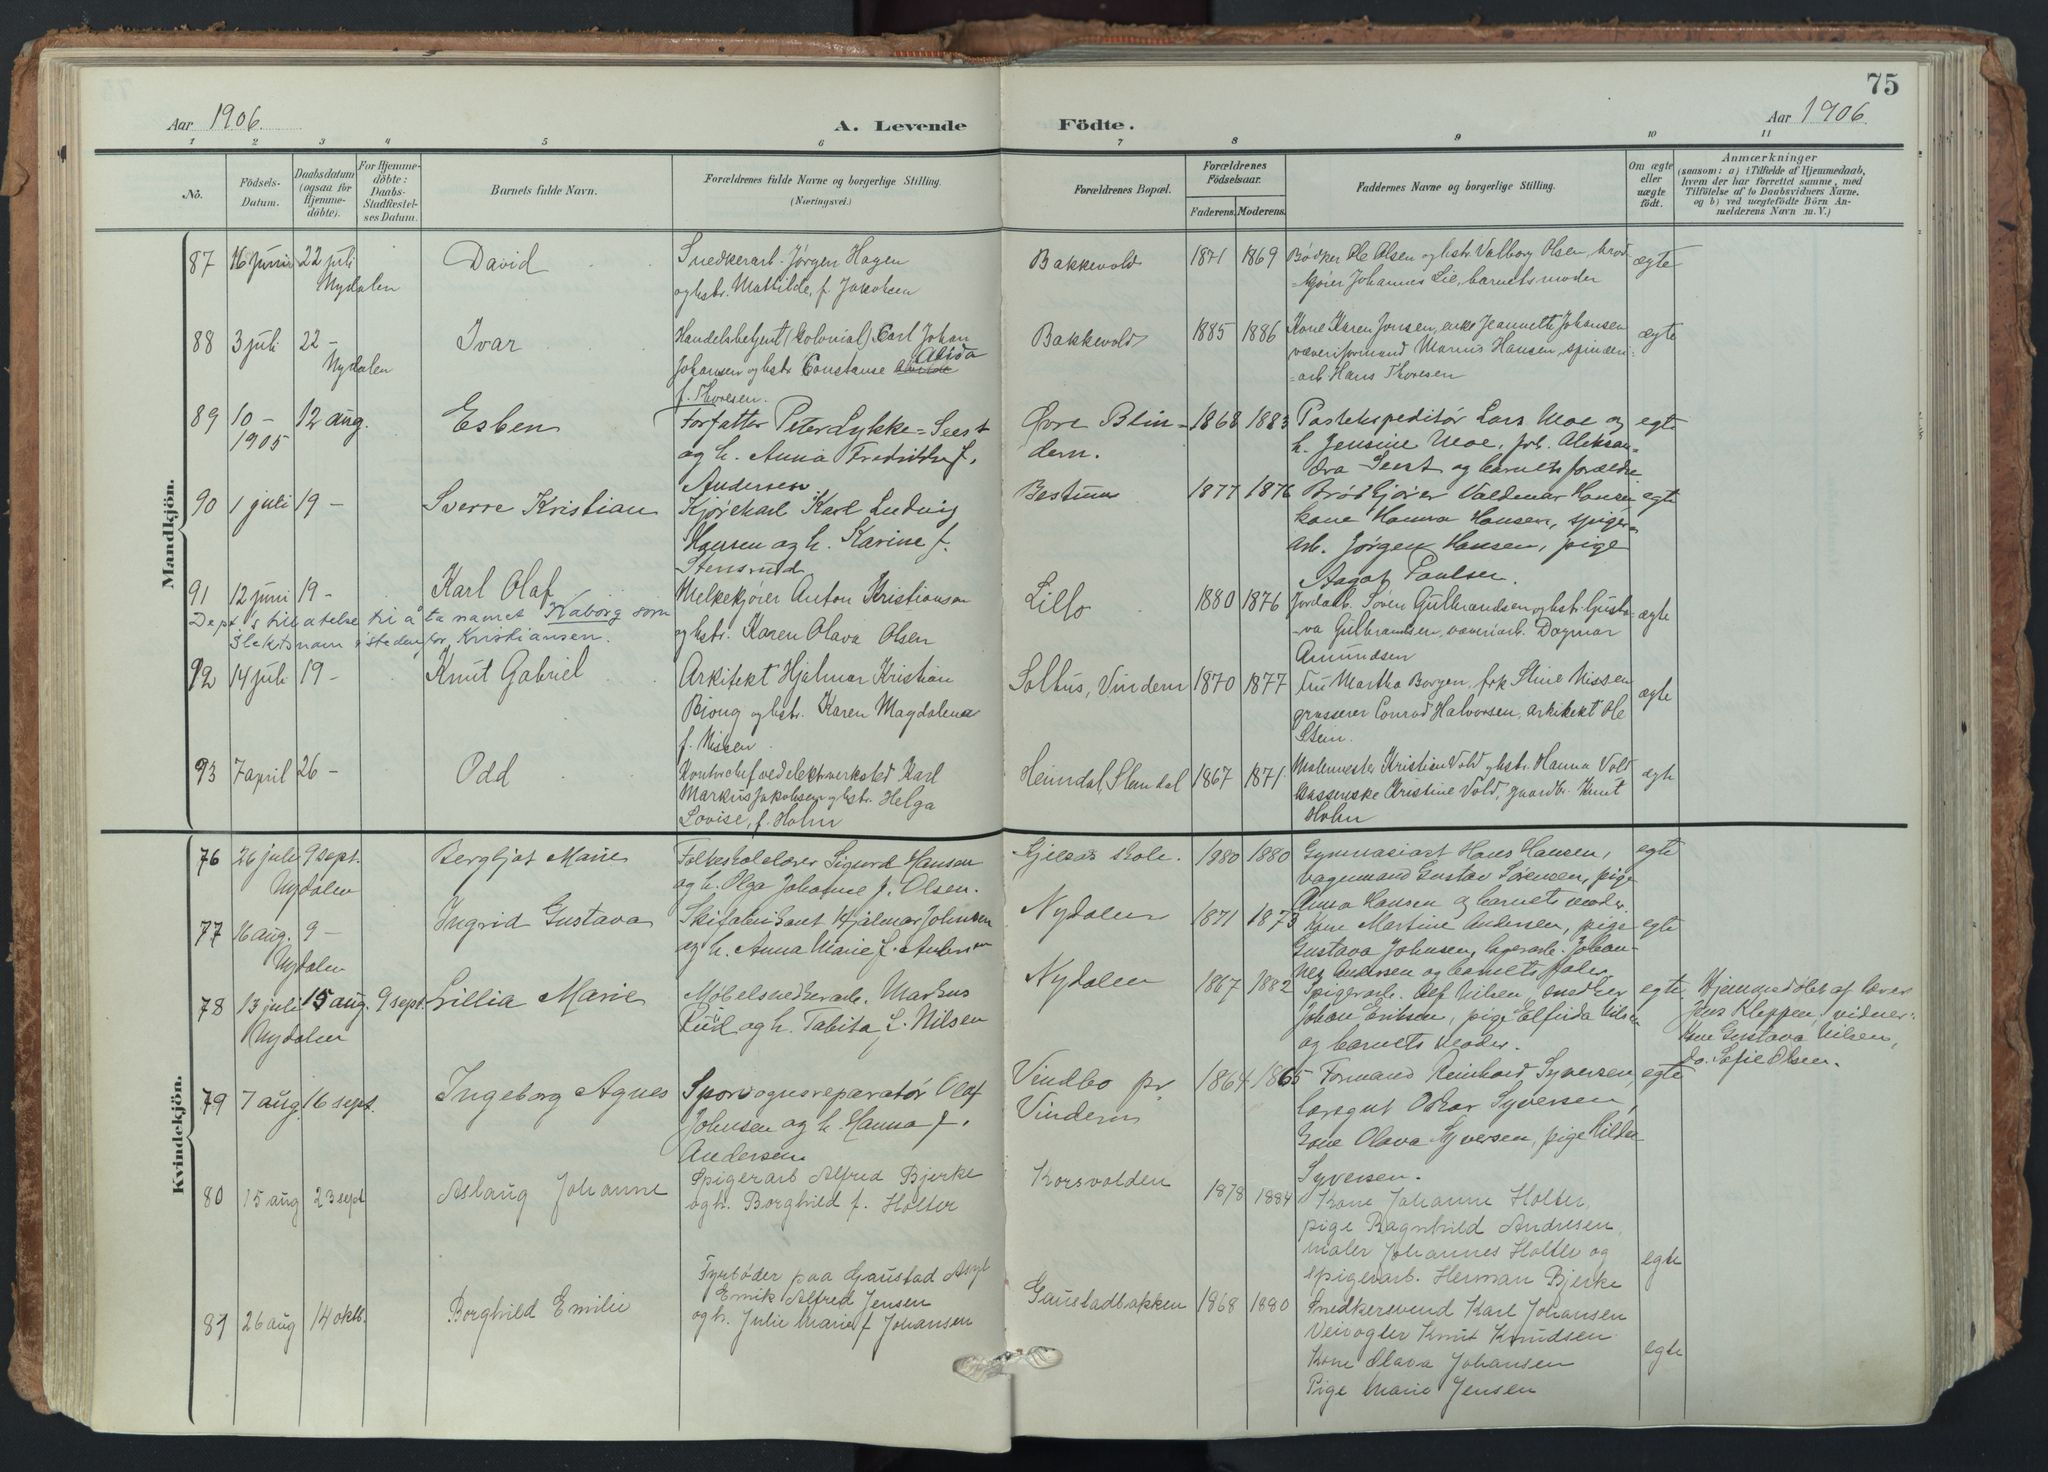 75
Aar 1906.
A. Levende Födte.
Aar 1906.
1 2 3 4 5 6 7 8 9 10 11
No.
Födsels-Datum.
Daabsdatum (ogsaa for Hjemmedöbte).
For Hjemmedöbte: Daabs-Stadfæstelses Datum.
Barnets fulde Navn.
Forældrenes fulde Navne og borgerlige Stilling. (Næringsvei.)
Forældrenes Bopæl.
Forældrenes Födselsaar.
Faderens. Moderens.
Faddernes Navne og borgerlige Stilling.
Om ægte eller uægte födt.
Anmærkninger
(saasom: a) i Tilfælde af Hjemmedaab, hvem der har forrettet samme, med Tilföielse af to Daabsvidners Navne. og b) ved uægtefödte Börn Anmelderens Navn m. V.)
Mandkjön.
87 16 juni 22 juli Nydalen
David
Snedkerarb. Jørgen Hagen
og hstr. Mathilde, f. Jakobsen
Bakkevold
1871 1869
Bødker Ole Olsen og hstr. Valborg Olsen, brød-
=kjører Johannes Lie, barnets moder
ægte
88 3 juli 22 - Nydalen
Ivar
Handelsbetjent (kolonial) Carl Johan
Johansen og hstr. Constanse Alida
f. Thoresen.
Bakkevold
1885 1886
Kone Karen Jonsen, enke Jeannette Johansen
væveriformand Marius Hansen, spinderi-
=arb. Hans Thoresen
ægte
89 10 - 1905 12 aug.
Esben
Forfatter Peter Lykke=Seest
og h. Anna Fredrikke f.
Andersen
Øvre Blin-
dern.
1868 1883
Postekspeditør Lars Moe og
h. Jensine Moe, frk. Aleksan-
dra Seest og barnets forældre
egte
90 1 juli 19 -
Sverre Kristian
Kjørekarl Karl Ludvig
Hansen og h. Karine f.
Stensrud
Bestum
1877 1876
Brødkjører Valdemar Hansen
kone Hanna Hansen, spiger-
arb. Jørgen Hansen, pige
Aagot Paulsen.
egte
91 12 juni 19 -
Karl Olaf
Melkekjører Anton Kristiansen
og hstr. Karen Olava Olsen
Lillo
1880 1876
Jordarb. Søren Gulbrandsen og hstr. Gusta-
-va Gulbrandsen, væveriarb. Dagmar
Amundsen
ægte
Dept's tillatelse til å ta navnet Kaborg som
slektsnavn isteden for Kristiansen.
92 14 juli 19 -
Knut Gabriel
Arkitekt Hjalmar Kristian
Bjong og hstr. Karen Magdalena
f. Nissen
Solhus, Vindern
1870 1877
Fru Martha Borgen, frk Stine Nissen
grosserer Conrad Halvorsen, arkitekt Ole
Stein.
ægte
93 7 april 26 -
Odd
Kontorchef ved elektr. verksted Karl
Markus Jakobsen og hstr. Helga
Lovise, f. Holm
Heimdal, Slemdal
1867 1871
Malermester Kristian Vold og hstr. Hanna Vold
Kristine Vold, gaardbr. Knut
Holm
ægte
Kvindekjön.
76 26 juli 9 sept. Nydalen
Bergljot Marie
Folkeskolelærer Sigurd Hansen
og h. Olga Johanne f. Olsen.
skole.
1880 1880
Gymnasiast Hans Hansen,
vognmand Gustav Sørensen, pige
Anna Hansen og barnets moder.
egte
77 16 aug. 9 - Nydalen
Ingrid Gustava
Skifabrikant Hjalmar Johnsen
og h. Anna Marie f. Andersen
Nydalen
1871 1873
Kone Martine Andersen, pige
Gustava Johnsen, lagerarb. Johan-
nes Andersen og barnets fader
egte
78 13 juli 15 aug. 9 sept. Nydalen
Lillia Marie
Møbelsnedkerarb. Markus
Ruud og h. Tabita f. Nilsen
Nydalen
1867 1882
Spigerarb. Olf Nilsen, snedker
Johan Eriksen, pige Elfrida Nilsen
og barnets moder.
egte.
Hjemmedøbt af lærer
Jens Kleppen, vidner:
Kone Gustava Nilsen,
do. Sofie Olsen.
79 7 aug. 16 sept.
Ingeborg Agnes
Sporvognsreparatør Olaf
Johnsen og h. Hanna f.
Andersen
Vindbo pr.
Vindern
1864 1865
Formand Reinhard Syversen,
Oskar Syversen,
kone Olava Syversen, pige Hilda
Syversen.
egte
80 15 aug 23 sept
Aslaug Johanne
Spigerarb Alfred Bjerke
og h. Borghild f. Holter
Korsvolden
1878 1884
Kone Johanne Holter,
pige Ragnhild Andresen,
maler Johannes Holter og
spigerarb. Herman Bjerke
egte
81 26 aug 14 oktb.
Borghild Emilie
Fyrbøder paa Gaustad Asyl
Emik Alfred Jensen
og h. Julie Marie f Johansen
Gaustadbakken
1868 1880
Snedkersvend Karl Johansen
Veivogter Knut Knudsen
Kone Olava Johansen
Pige Marie Jensen
egte